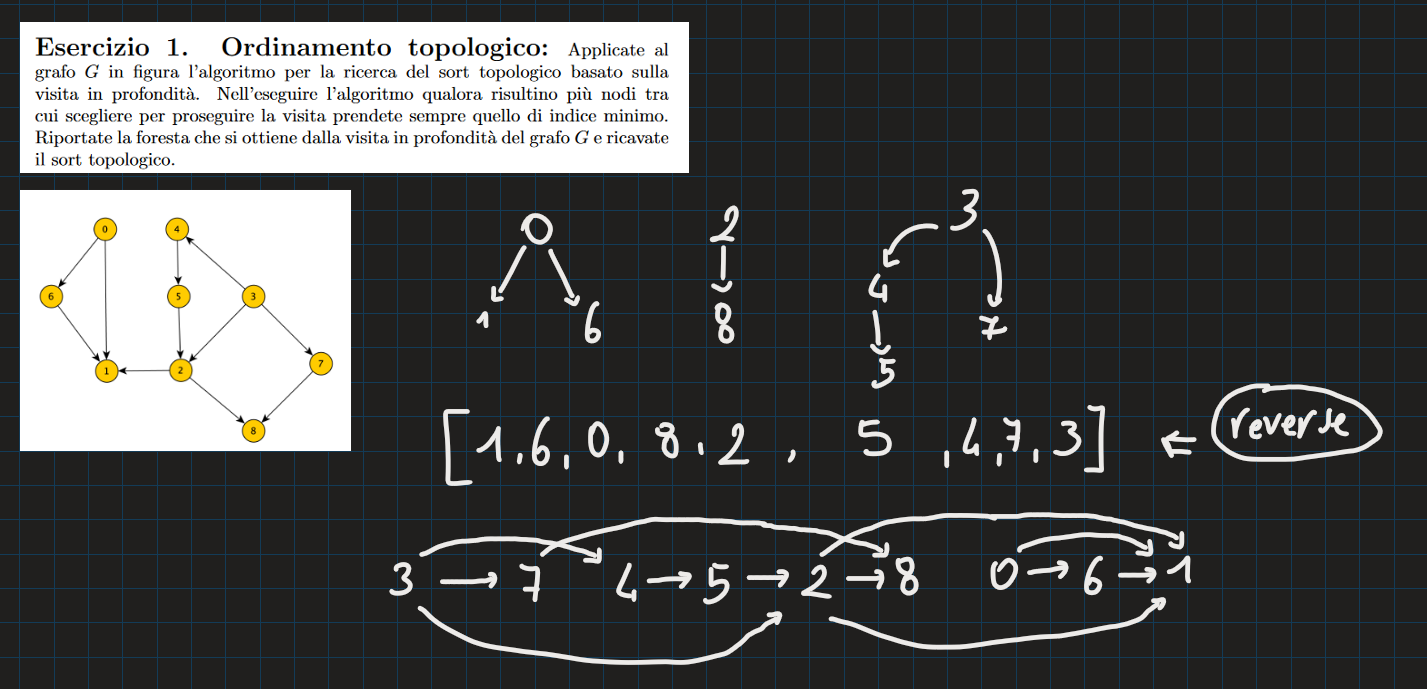 Esercizio 1. Ordinamento topologico: Applicate al
grafo G in figura l'algoritmo per la ricerca del sort topologico basato sulla
visita in profondità. Nell'eseguire l'algoritmo qualora risultino più nodi tra
cui scegliere per proseguire la visita prendete sempre quello di indice minimo.
Riportate la foresta che si ottiene dalla visita in profondità del grafo G e ricavate
il sort topologico.
0 4
6 5 3
1 2 7
8
0 2 3
1 6 8 4 7
5
[1,6,0,8,2, 5,4,7,3] ← reverse
3 → 7 4 → 5 → 2 → 8 0 → 6 → 1